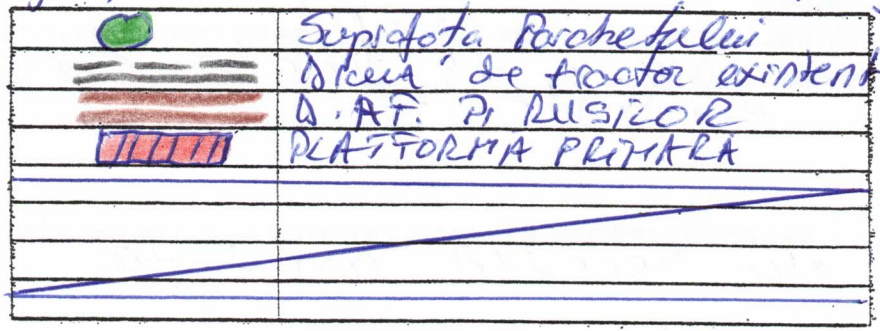 Suprafata Parchetului
Drum de tractor existent
D.AF. Pl RUSILOR
PLATFORMA PRIMARA